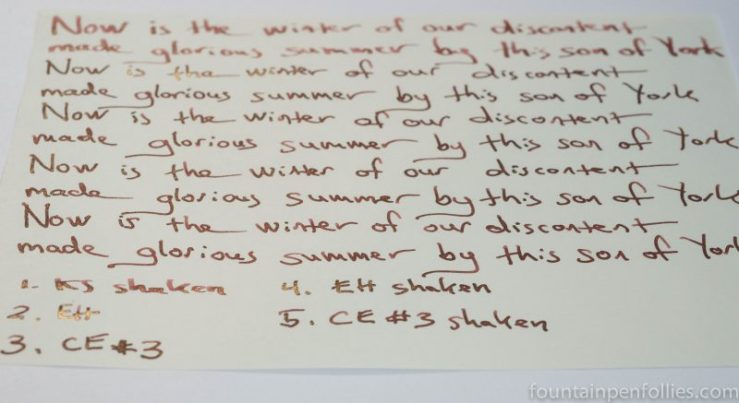 Now is the winter of our discontent
made glorious summer by this son of York
Now is the winter of our discontent
made glorious summer by this son of York
Now is the winter of our discontent
made glorious summer by this son of York
Now is the winter of our discontent
made glorious summer by this son of York
Now is the winter of our discontent
made glorious summer by this son of York
1. KS shaken
2. EH
3. CE #3
4. EH shaken
5. CE #3 shaken
fountainpenfollies.com